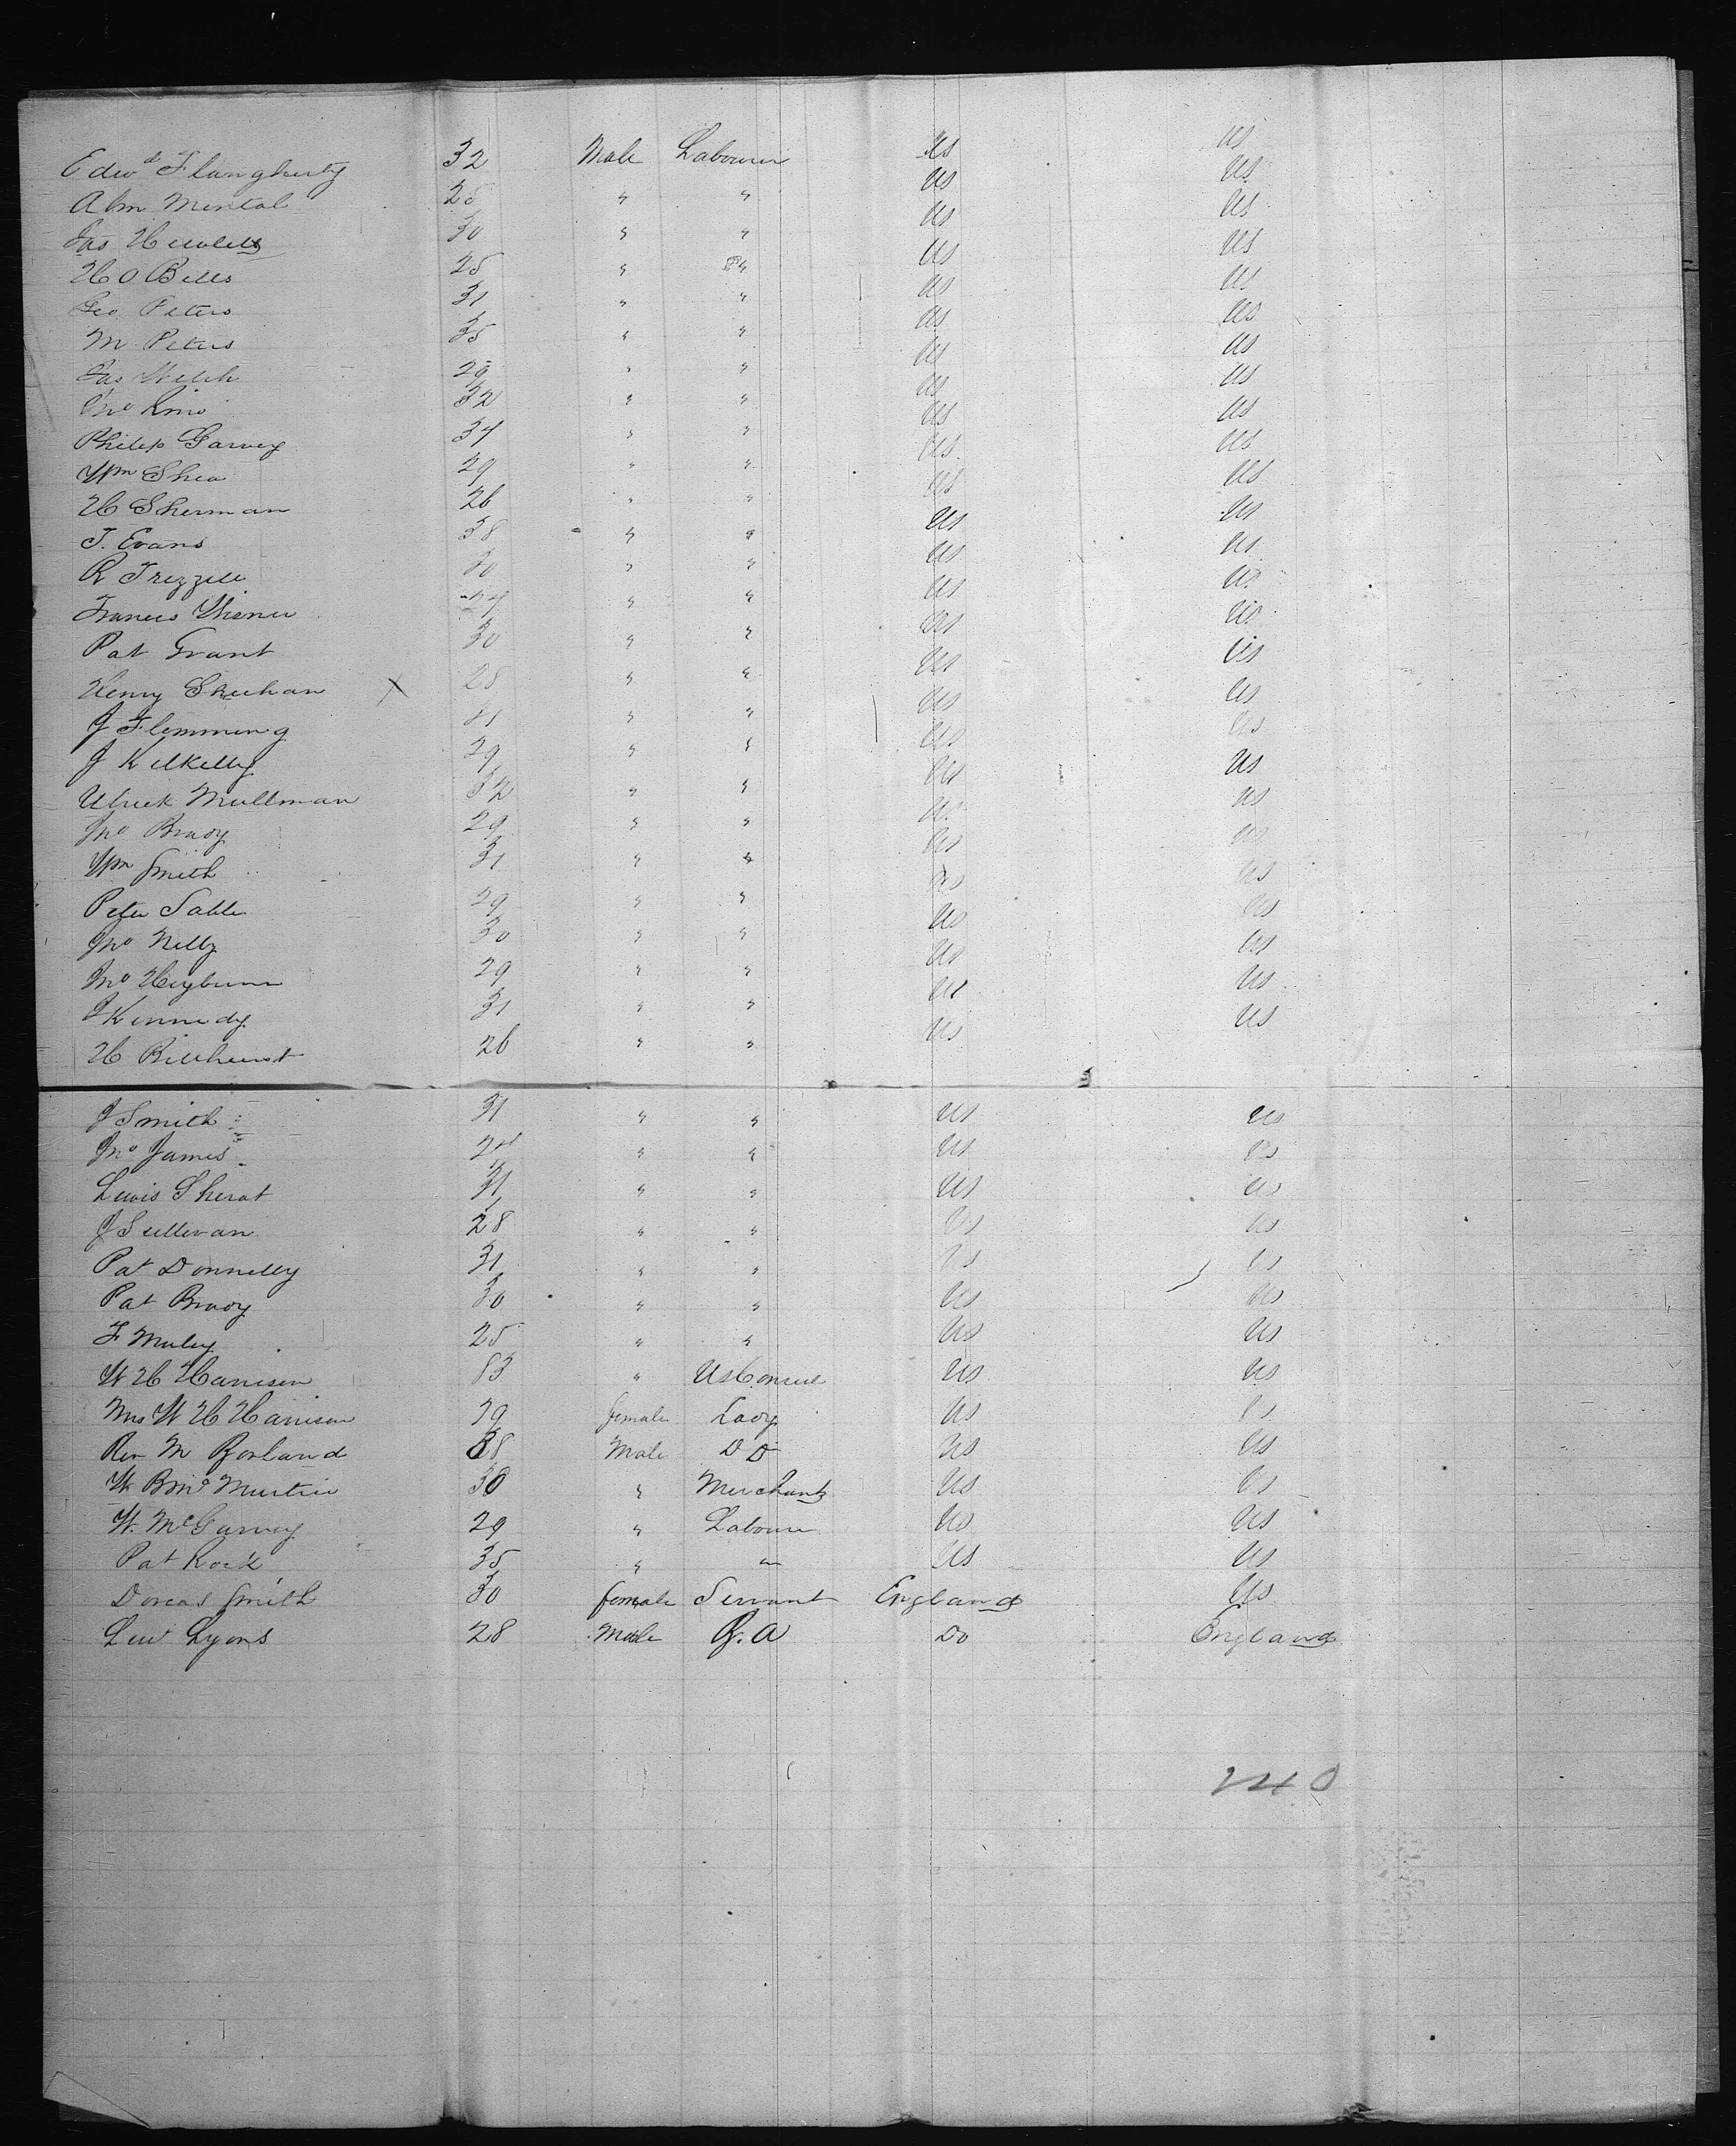 Edwd Flangherty 32 Male Labourer US US
Abm Mental 25 " " US US
Jas Hewlett 30 " " US US
H O Bells 25 " " US US
Geo Peters 31 " " US US
M Peters 35 " " US US
Jas Welch 29 " " US US
Jno 32 " " US US
Philip Garvey 34 " " US US
Wm Shea 29 " " US US
H Sherman 26 " " US US
T. Evans 38 " " US US
R Frizzell 30 " " US US
Francis 27 " " US US
Pat Grant 30 " " US US
Henry Sheehan X 28 " " US US
J Flemming 31 " " US US
J Kilkelly 29 " " US US
Ulrick Mullman 32 " " US US
Jno Brady 29 " " US US
Wm Smith 31 " " US US
Peter Sable 29 " " US US
Jno Nelly 30 " " US US
Jno Heyburn 29 " " US US
J Kennedy 31 " " US US
H Billhurst 26 " " US US
J Smith 31 " " US US
Jno James " " US US
Lewis Sherat 31 " " US US
J Sullivan 28 " " US US
Pat Donnelly 31 " " US US
Pat Brady 30 " " US US
F Muley 25 " " US US
W H Harrison " US Consul US US
Mrs W H Harrison 39 female Lady US US
Rev M Borland 38 Male D D US US
W B Mc Murtrie 30 " Merchant US US
W. McGarvey 29 " Laboure US US
Pat Rock 35 " " US US
Dorcas Smith 30 female Servant England US
Lew Lyons 28 Male R. A Do England
240